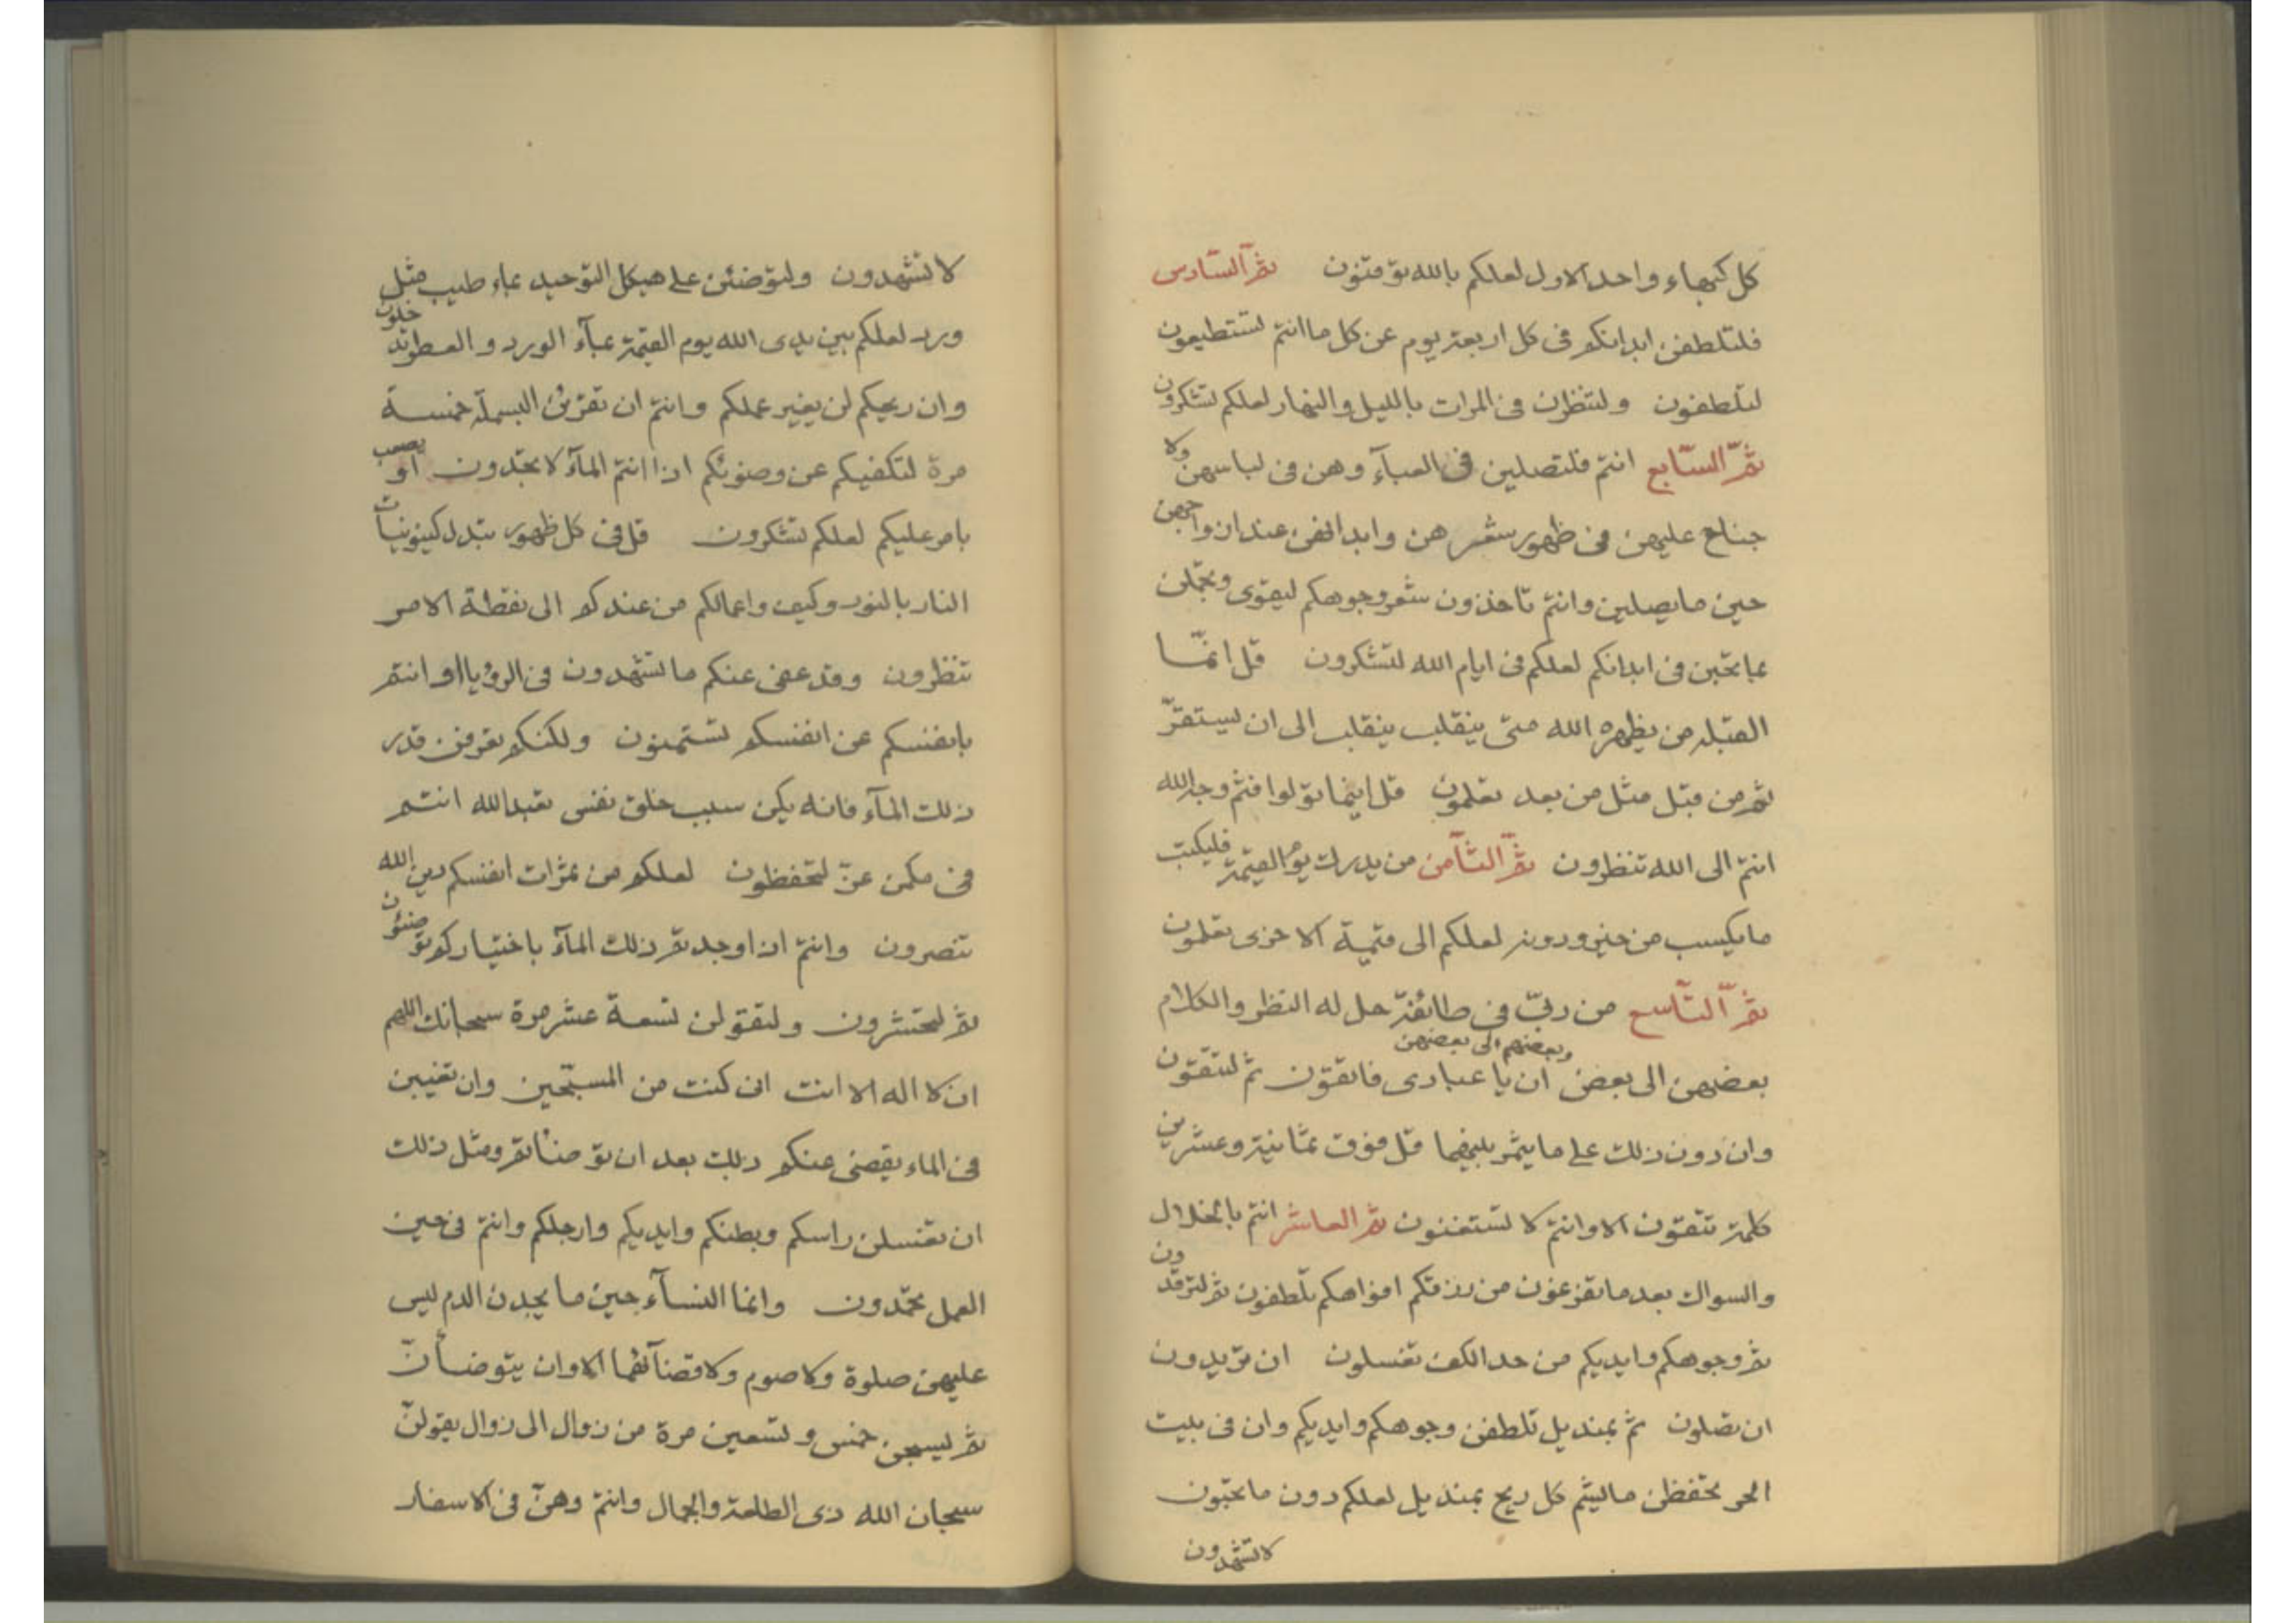 كل كبهاء واحد الاول لعلكم بالله توقنون ثم السادس
فلتلطفن ابدانكم فى كل اربعة يوم عن كل ما انتم تستطيعون
لتلطفون ولتنظرن فى المرات بالليل والنهار لعلكم تشكرون
ثم السابع انتم فلتصلين فى العبآء وهن فى لباسهن ولا
جناح عليهن فى ظهور شعرهن وابدانهن عند ازواجهن
حين ما يصلين وانتم تاخذون شعر وجوهكم ليقوى وتجملن
بما تحبن فى ابدانكم لعلكم فى ايام الله لتشكرون قل انما
القبلة من يظهره الله متى ينقلب ينقلب الى ان يستقر
ثم من قبل مثل من بعد تعلمون قل اينما تولوا فثم وجه الله
انتم الى الله تنظرون ثم الثامن من يدرك يوم القيمة فليكتب
ما يكسب من خير ودونه لعلكم الى قيمة الاخرى تعلمون
ثم التاسع من ربى فى طائفة حل له النظر والكلام
بعضهن الى بعض وبعضهم الى بعضهن ان يا عبادى فاتقون ثم لتتقون
وان دون ذلك على ما يثمر بينهما قل فوق ثمانية وعشرين
كلمة تتقون الا وانتم لا تستغنون ثم العاشر انتم بالخلال
والسواك بعد ما تفرغون من رزقكم افواهكم تلطفون ثم لترقدون
ثم وجوهكم وايديكم من حد الكف تغسلون ان تريدون
ان تصلون ثم بمنديل تلطفن وجوهكم وايديكم وان فى بيت
الحر تحفظن ما ليشم كل ريح بمنديل لعلكم دون ما تحبون
لا تشهدون
لا تشهدون ولتوضئن على هيكل التوحيد بماء طيب مثل
ورد لعلكم بين يدى الله يوم القيمة بمآء الورد والعطر تدخلون
وان ريحكم لن يغير عملكم وانتم ان تقرئن البسملة خمسة
مرة لتكفيكم عن وضوئكم اذا انتم المآء لا تجدون او يصعب
بامر عليكم لعلكم تشكرون قل فى كل ظهور تبدل كينونيات
النار بالنور وكيف واعمالكم من عندكم الى نقطة الامر
تنظرون وقد عفى عنكم ما تشهدون فى الرؤيا او انتم
بانفسكم عن انفسكم تستمنون ولكنكم تعرفن قدر
ذلك المآء فانه يكن سبب خلق نفس تعبد الله انتم
فى مكمن عز لتحفظون لعلكم من ثمرات انفسكم دين الله
تنصرون وانتم اذا وجدتم ذلك المآء باختياركم توضئون
ثم لتحتشرون ولتقولن تسعة عشر مرة سبحانك اللهم
ان لا اله الا انت انى كنت من المسبحين وان تغيبن
فى الماء يقضى عنكم ذلك بعد ان توضئاتم ومثل ذلك
ان تغسلن راسكم وبطنكم وايديكم وارجلكم وانتم فى حين
العمل تحمدون وانما النسآء حين ما يجدن الدم ليس
عليهن صلوة ولا صوم ولا قضآئهما الا وان يتوضأن
ثم ليسبحن خمس وتسعين مرة من زوال الى زوال يقولن
سبحان الله ذى الطلعة والجمال وانتم وهن فى الاسفار